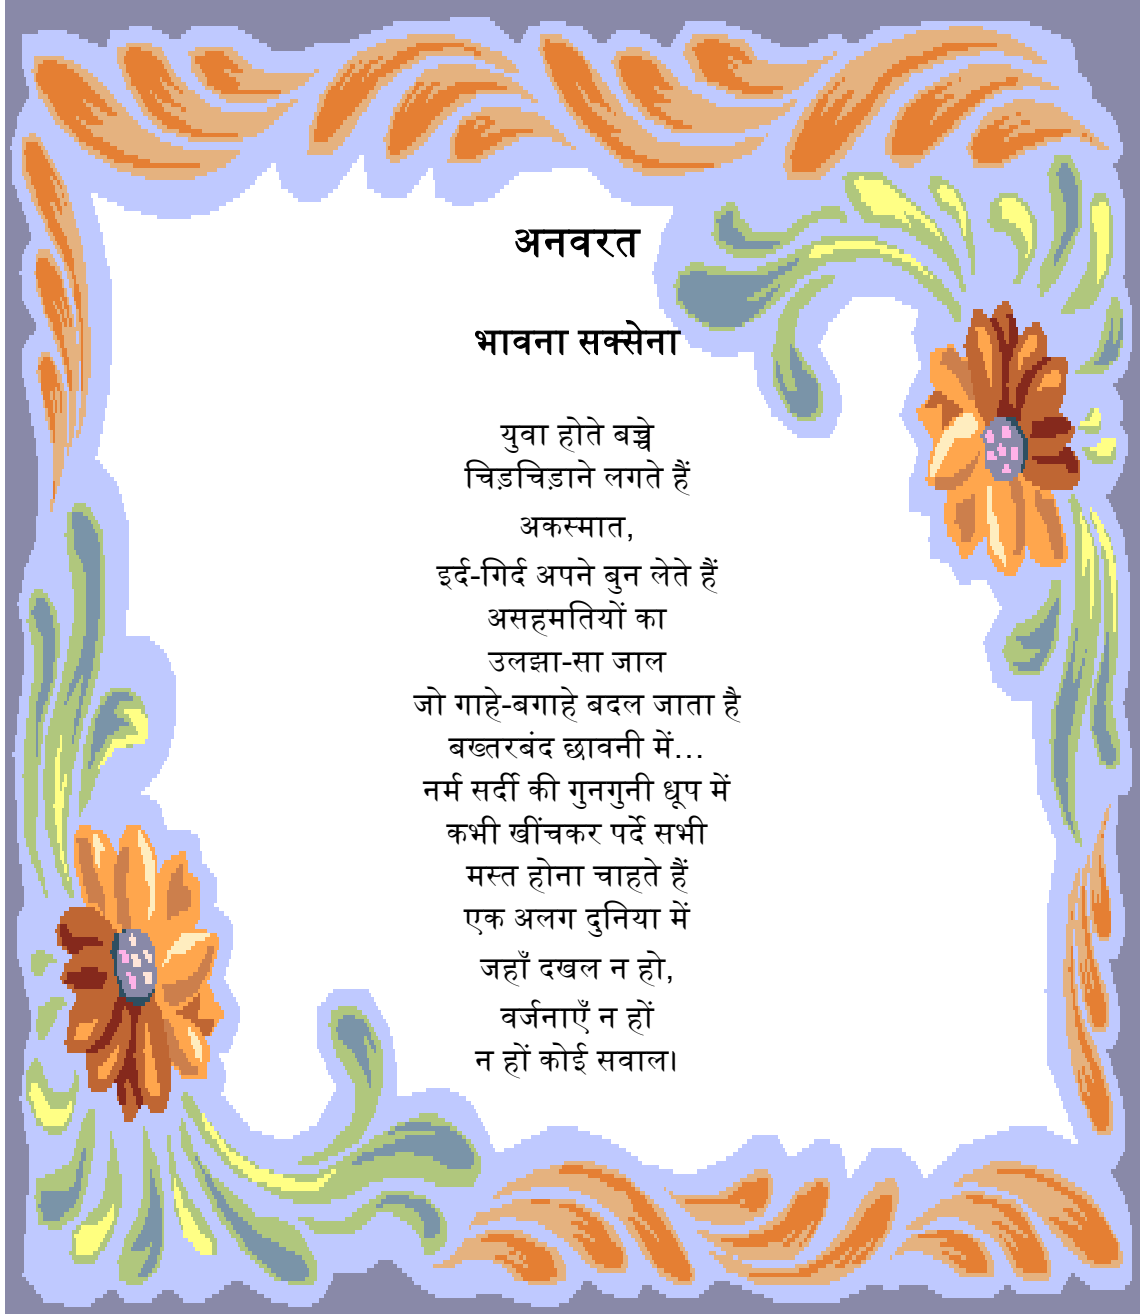 अनवरत
भावना सक्सेना
युवा होते बच्चे
चिड़चिड़ाने लगते हैं
अकस्मात,
इर्द-गिर्द अपने बुन लेते हैं
असहमतियों का
उलझा-सा जाल
जो गाहे-बगाहे बदल जाता है
बख्तरबंद छावनी में...
नर्म सर्दी की गुनगुनी धूप में
कभी खींचकर पर्दे सभी
मस्त होना चाहते हैं
एक अलग दुनिया में
जहाँ दखल न हो,
वर्जनाएँ न हों
न हों कोई सवाल।